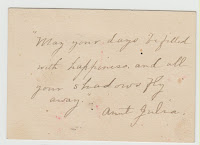 "May your days be filled
with happiness, and all
your shadows fly
away." Aunt Julia.